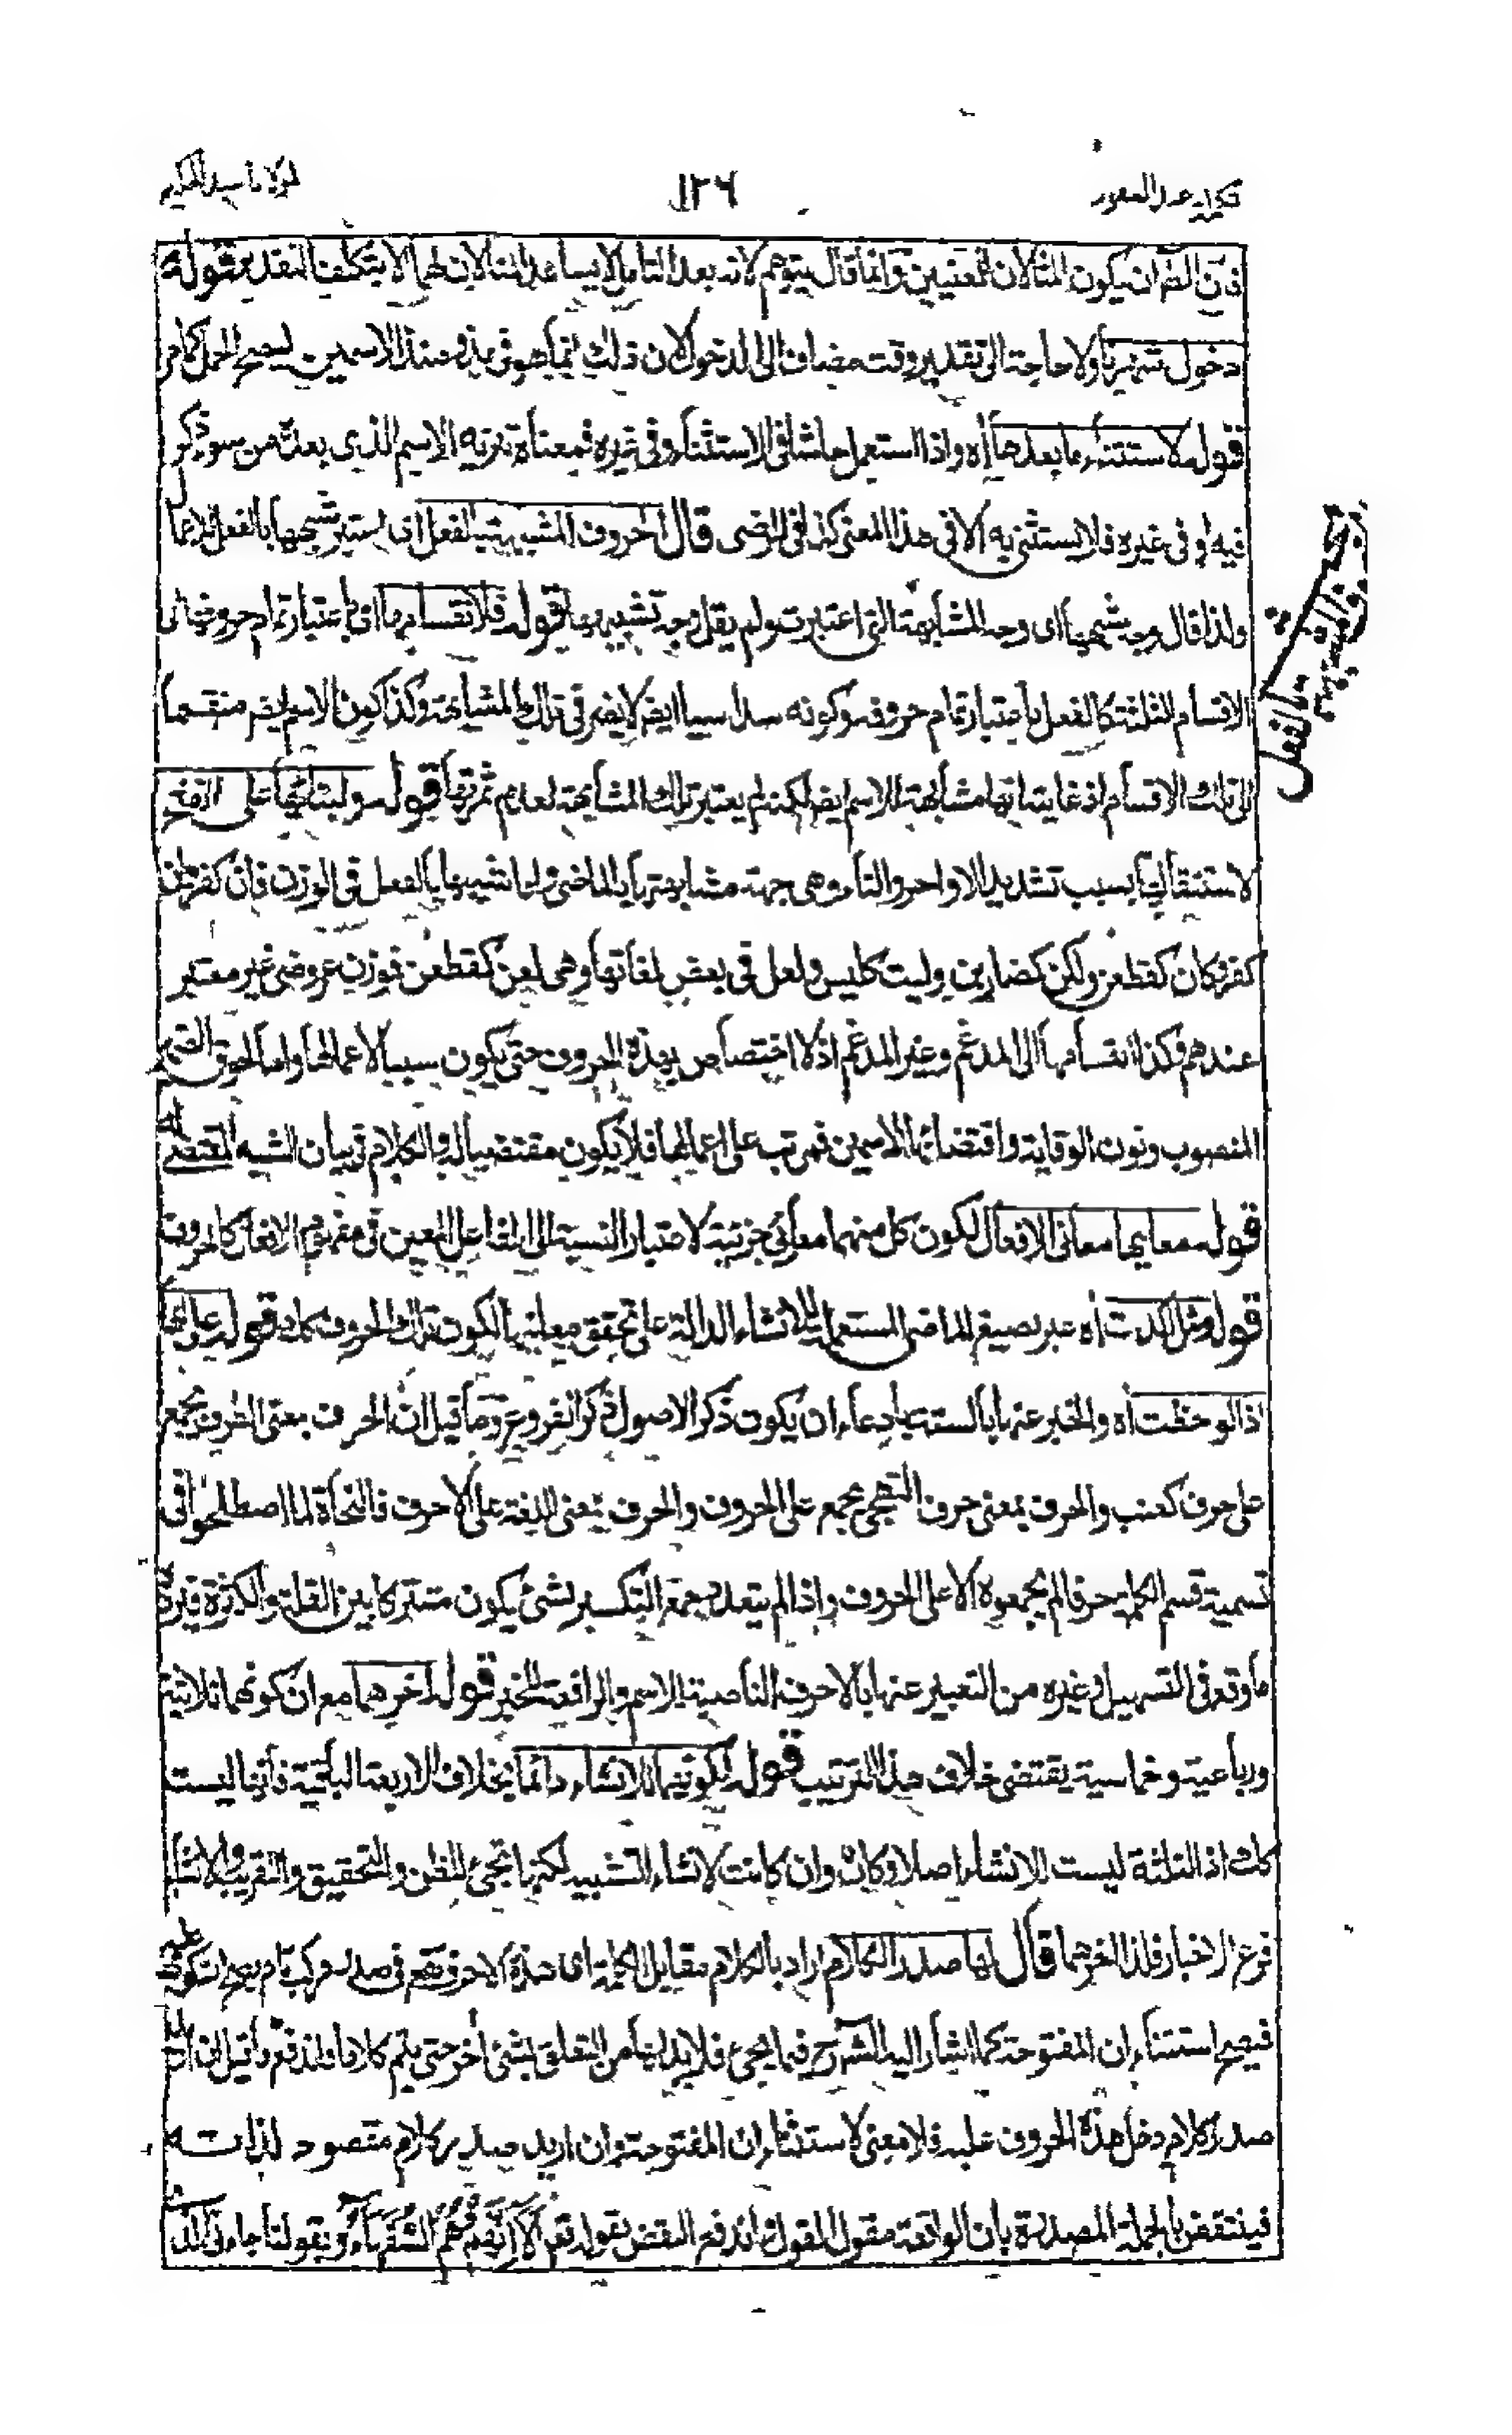 تكملة عبد الغفور
١٢٦
لمولانا عبد الحكيم
فان الظ ان يكون المثالان للمعنيين وانما قال يتوهم لانه بعد التامل لا يساعد المثالان لهما الا بتكلف التقدير قوله
دخول تنمرها ولا حاجة الى تقدير وقت مضاف الى الدخول لان ذلك انما هو فى مذ ومنذ الاسمين ليصح الحمل كما مر
قوله لاستثناء ما بعدها آه واذا استعمل حاشا فى الاستثناء وفى غيره فمعناه تنزيه الاسم الذى بعده من سوء ذكر
فيه او فى غيره فلا يستثنى به الا فى هذا المعنى كذا فى الرضى قال الحروف المشبهة بالفعل اى اعتبر شبهها بالفعل للاعمال
ولذا قال وجه شبهها اى وجه المشابهة التى اعتبرت ولم يقل وجه تشبيهها قوله فلانقسامها اى باعتبار تمام حروفها الى
الاقسام الثلثة كالفعل باعتبار تمام حروفه وكونه سداسيا ايض لا يضر فى تلك المشابهة وكذا كون الاسم ايض منقسما
الى تلك الاقسام اذ غايته انها مشابهة للاسم ايض لكنه لم يعتبر تلك المشابهة لعدم ثمرتها قوله ولبنائها على الفتح
لاستثقالها بسبب تشديد الاواخر والتاء وهى جهة مشابهتها بالماضى واما تشبيهها بالفعل فى الوزن فان كفر وان
كفرن وكان كقطعن ولكن كضاربن وليت كليس ولعل فى بعض لغاتها وهى لعن كقطعن فوزن عروضى غير معتبر
عندهم وكذا انقسامها الى المدغم وغير المدغم اذ لا اختصاص بهذه الحروف حتى يكون سببا لاعمالها واما لحوق الضمير
المنصوب ونون الوقاية واقتضائها الاسمين فمرتب على اعمالها فلا يكون مقتضيا له والكلام فى بيان الشبه المقتضى له
قوله معانيها معانى الافعال لكون كل منهما معانى جزئية لاعتبار النسبة الى الفاعل المعين فى مفهوم الافعال كالحروف
قوله مثل اكدت آه عبر بصيغ الماضى المستعمل للانشاء الدالة على تحقق معانيها لكون تلك الحروف كذلك قوله على انها
اذا لوحظت آه والمخبر عنها بالستة بادعاء ان يكون ذكر الاصول ذكر الفروع وما قيل ان الحرف بمعنى الطرف يجمع
على حرف كعنب والحرف بمعنى حرف التهجى يجمع على الحروف والحرف بمعنى اللغة على الاحرف فالنحاة لما اصطلحوا فى
تسمية قسم الكلمة حرفا لم يجمعوه الا على الحروف واذا لم يتعدد جمع التكسير لشئ يكون مشتركا بين القلة والكثرة فيرده
ما وقع فى التسهيل وغيره من التعبير عنها بالاحرف الناصبة للاسم والرافعة للخبر قوله اخرهما مع ان كونهما ثلاثية
ورباعية وخماسية يقتضى خلاف هذا الترتيب قوله لكونهما للانشاء دائما بخلاف الاربعة الباقية فانها ليست
كذلك اذ الثلثة ليست للانشاء اصلا وكان وان كانت لانشاء التشبيه لكنها تجئ للظن والتحقيق والتقريب والانشاء
فرع الاخبار فلذا اخرهما قال لها صدر الكلام اراد بالكلام مقابل الكلمة اى هذه الاحرف تقع فى صدر مركب تام يصح السكوت عليه
فيصح استثناء ان المفتوحة كما اشار اليه الشرح فيما يجئ فلا بد لها من التعلق بشئ اخر حتى يتم كلاما فاندفع ما قيل ان اراد
صدر كلام دخل هذه الحروف عليه فلا معنى لاستثناء ان المفتوحة وان اريد صدر كلام مقصود لذاته
فينتقض بالجملة المصدرة بان الواقعة مقول القول اندفع النقض بقوله تع الا انهم هم السفهاء وبقولنا جاءنى الذى
الحروف المشبهة بالفعل